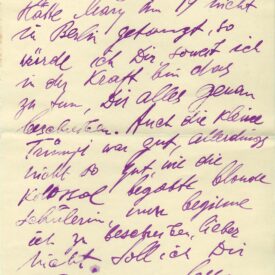 Hätte Mary am 19 nicht
in Berlin getanzt, so
würde ich Dir soweit ich
in der Kraft bin das
zu tun, Dir alles genau
beschreiben. Auch die kleine
Trümpi war gut, allerdings
nicht so gut, wie die
kolossal begabte blonde
Schülerin, nur beginne
ich zu beschreiben, lieber
nicht soll ich Dir